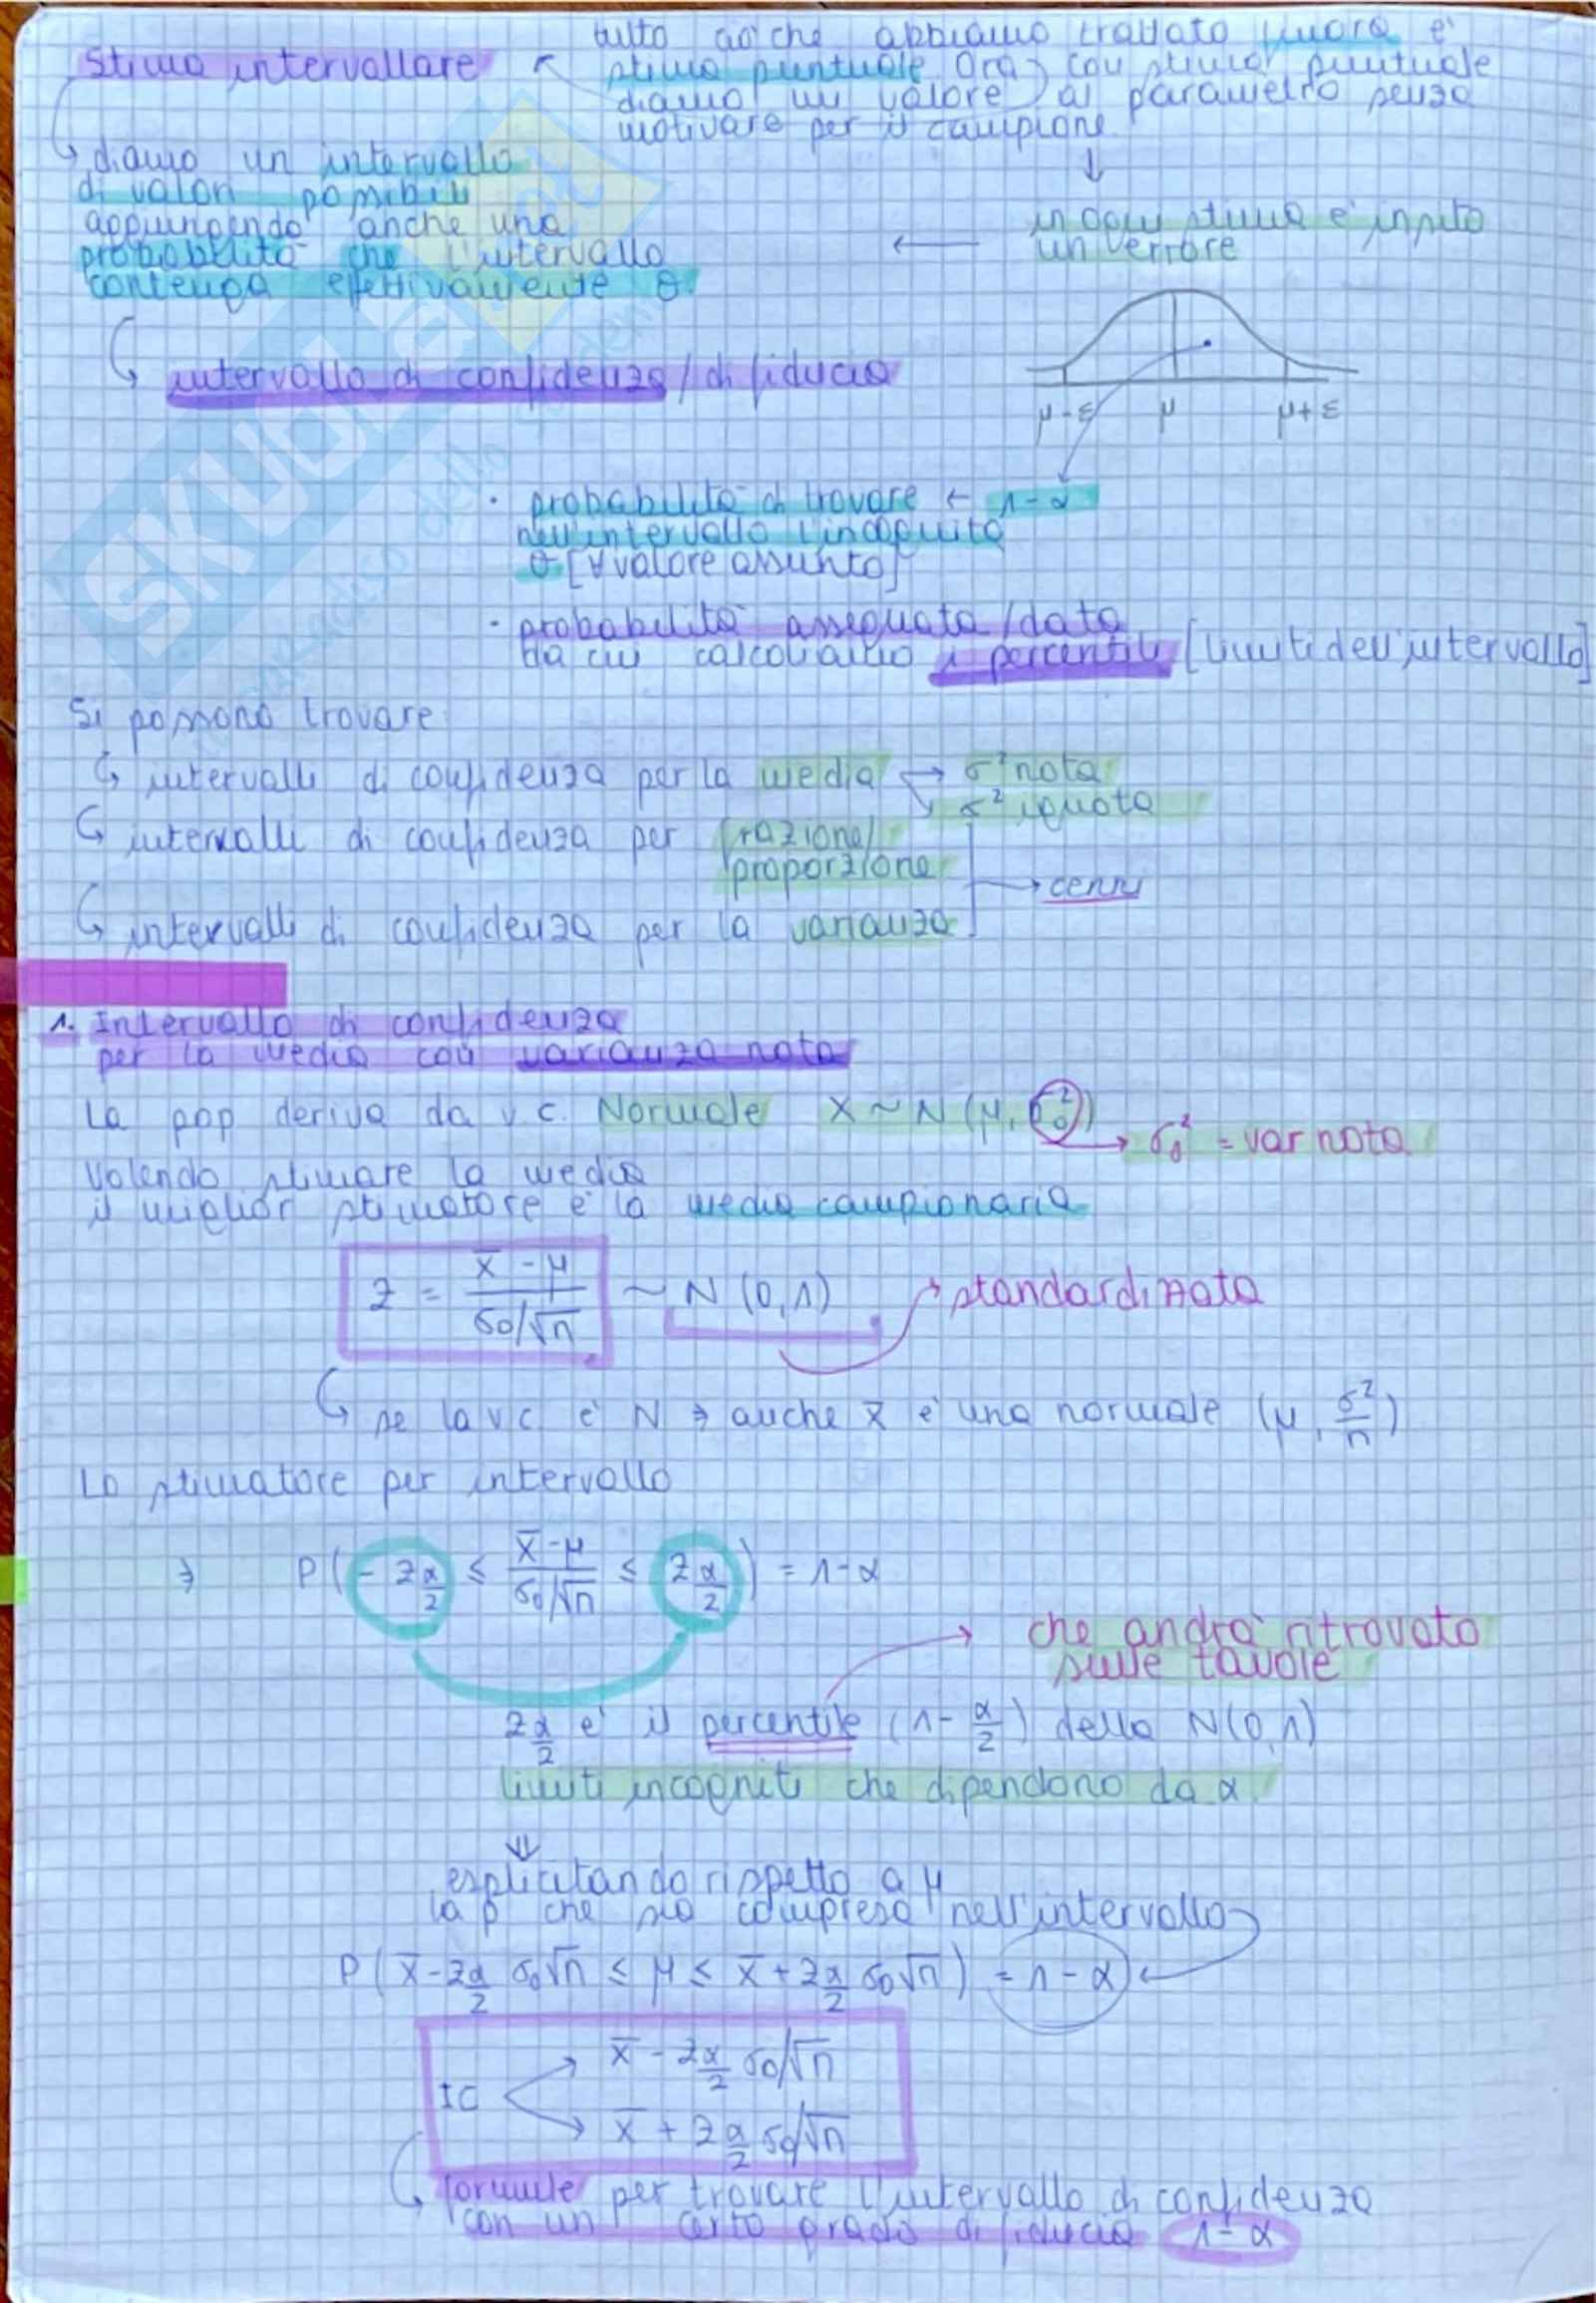 Stima intervallare
tutto ciò che abbiamo trattato finora è
stima puntuale. Ora, con stima puntuale
diamo un valore al parametro senza
motivare per il campione
diamo un intervallo
di valori possibili
aggiungendo anche una
probabilità che l'intervallo
contenga effettivamente θ
in ogni stima è insito
un errore
intervallo di confidenza / di fiducia
μ-ε μ μ+ε
• probabilità di trovare ← 1-α
nell'intervallo l'incognita
θ [∀ valore assunto]
• probabilità assegnata / data
da cui calcoliamo i percentili [limiti dell'intervallo]
Si possono trovare
intervalli di confidenza per la media → σ² nota
σ² ignota
intervalli di confidenza per frazione/
proporzione
→ cenni
intervalli di confidenza per la varianza
1. Intervallo di confidenza
per la media con varianza nota
La pop deriva da v.c. Normale X ~ N (μ, σ₀²) → σ₀² = var nota
Volendo stimare la media
il miglior stimatore è la media campionaria
Z = (x̄ - μ)/(σ0/√n) ~ N (0,1) → standardizzata
se la v.c. è N ⇒ anche x̄ è una normale (μ, σ²/n)
Lo stimatore per intervallo
⇒ P(-Zα/2 ≤ (x̄-μ)/(σ0/√n) ≤ Zα/2) = 1-α
che andrà ritrovato
sulle tavole
Zα/2 è il percentile (1-α/2) della N(0,1)
limiti incogniti che dipendono da α
⇓
esplicitando rispetto a μ
la p che sia compresa nell'intervallo
P(x̄-Zα/2 σ0√n ≤ μ ≤ x̄+Zα/2 σ0√n) = 1-α
x̄ - Zα/2 σ0/√n
IC
x̄ + Zα/2 σ0/√n
formule per trovare l'intervallo di confidenza
con un certo grado di fiducia 1-α
SKUOLA.net